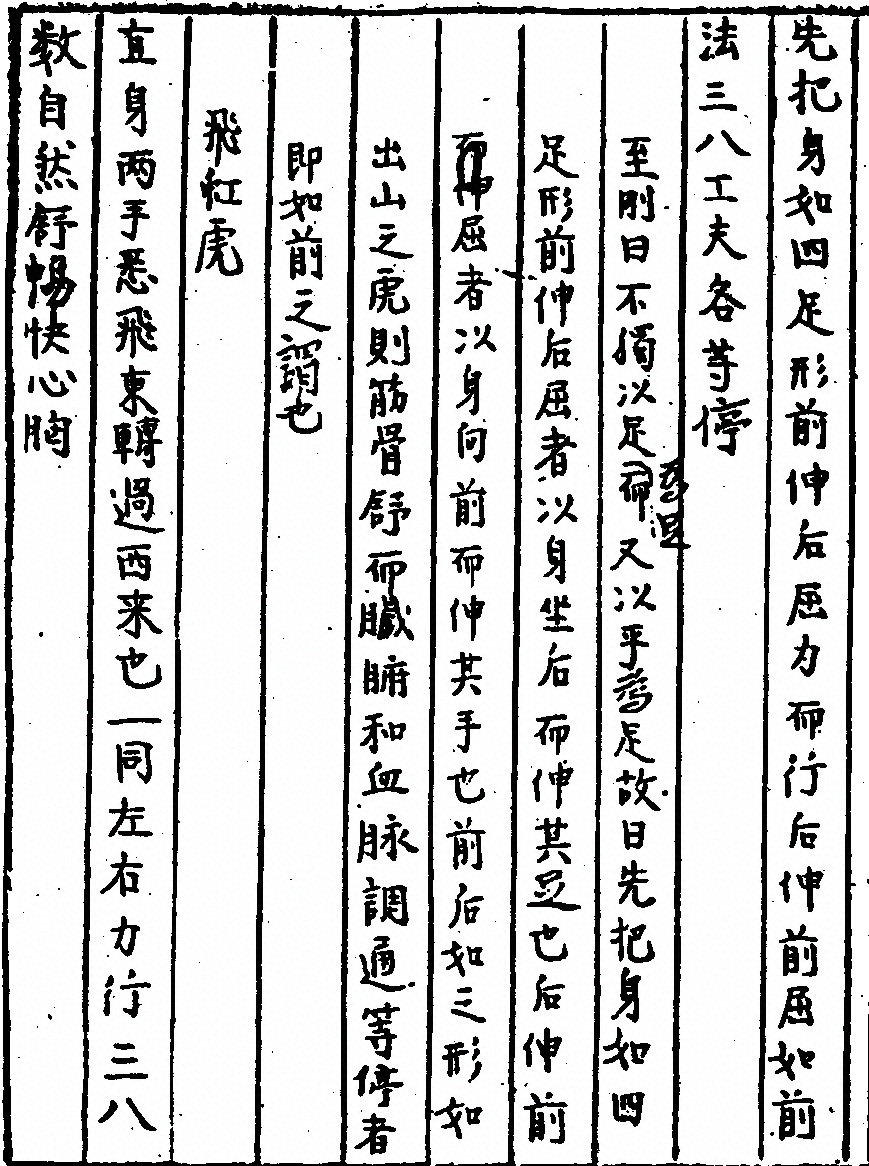 先把身如四足形前伸后屈力而行后伸前屈如前
法三八工夫各等停
至刚曰不獨以足而為足又以乎為足故曰先把身如四
足形前伸后屈者以身坐后而伸其足也后伸前
屈者以身向前而伸其手也前后如三形如
出山之虎則筋骨舒而臟腑和血脉調通等停者
即如前之謂也
飛虹虎
直身两手悉飛東轉過西来也一同左右力行三八
数自然舒暢快心胸